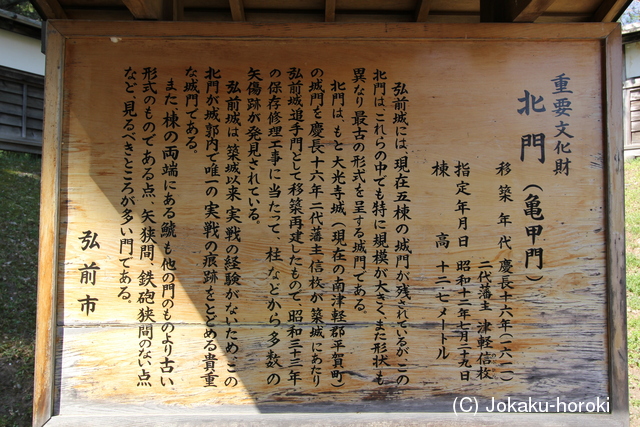 重要文化財
北門（亀甲門）
移築年代 慶長十六年（一六一一）
二代藩主 津軽信枚
指定年月日 昭和十二年七月二十九日
棟高 十二・七メートル
弘前城には、現在五棟の城門が残されているが、この
北門は、これらの中でも特に規模が大きく、また形状も
異なり最古の形式を呈する城門である。
北門は、もと大光寺城（現在の南津軽郡平賀町）
の城門を慶長十六年二代藩主信枚が築城にあたり
弘前城追手門として移築再建したもので、昭和三十三年
の保存修理工事に当たって、柱などから多数の
矢傷跡が発見されている。
弘前城は、築城以来、実戦の経験がないため、この
北門が城郭内で唯一の実戦の痕跡をとどめる貴重
な城門である。
また、棟の両端にある鯱も他の門のものより古い
形式のものである点、矢狭間、鉄砲狭間のない点
など、見るべきところが多い門である。
弘前市
(C) Jokaku-horoki